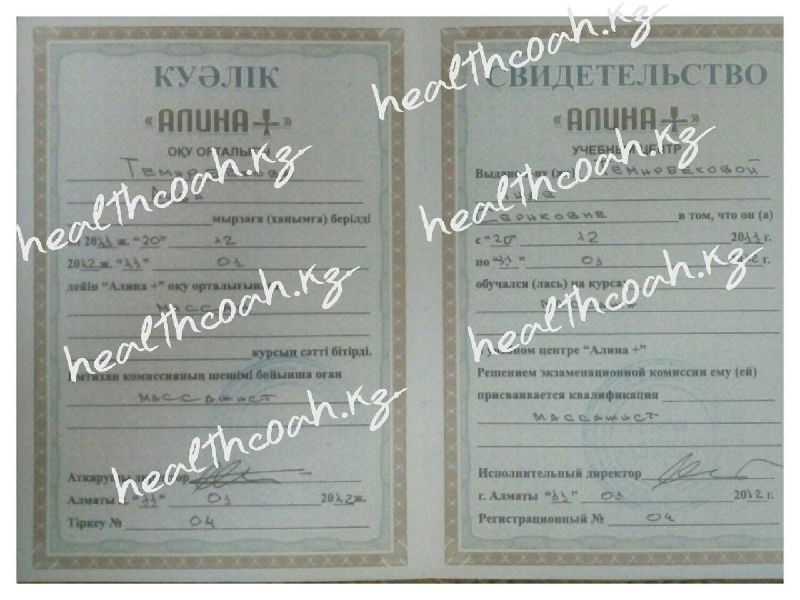 КУӘЛІК
«АЛИНА+»
ОҚУ ОРТАЛЫҒЫ
мырзаға (ханымға) берілді
2011 ж. "20" 12
2012 ж. "11" 01
дейін "Алина +" оқу орталығын
массаж
курсын сәтті бітірді.
Емтихан комиссияның шешімі бойынша оған
массажист
Атқарушы директор
Алматы қ. "11" 01 2012 ж.
Тіркеу № 04
СВИДЕТЕЛЬСТВО
«АЛИНА+»
УЧЕБНЫЙ ЦЕНТР
Выдано Темирбековой
Сериковне в том, что он (а)
с "20" 12 2011 г.
по "11" 01 г.
обучался (лась) на курсах
учебном центре "Алина +"
Решением экзаменационной комиссии ему (ей)
присваивается квалификация
массажист
Исполнительный директор
г. Алматы "11" 01 2012 г.
Регистрационный № 04
healthcoah.kz
healthcoah.kz
healthcoah.kz
healthcoah.kz
healthcoah.kz
healthcoah.kz